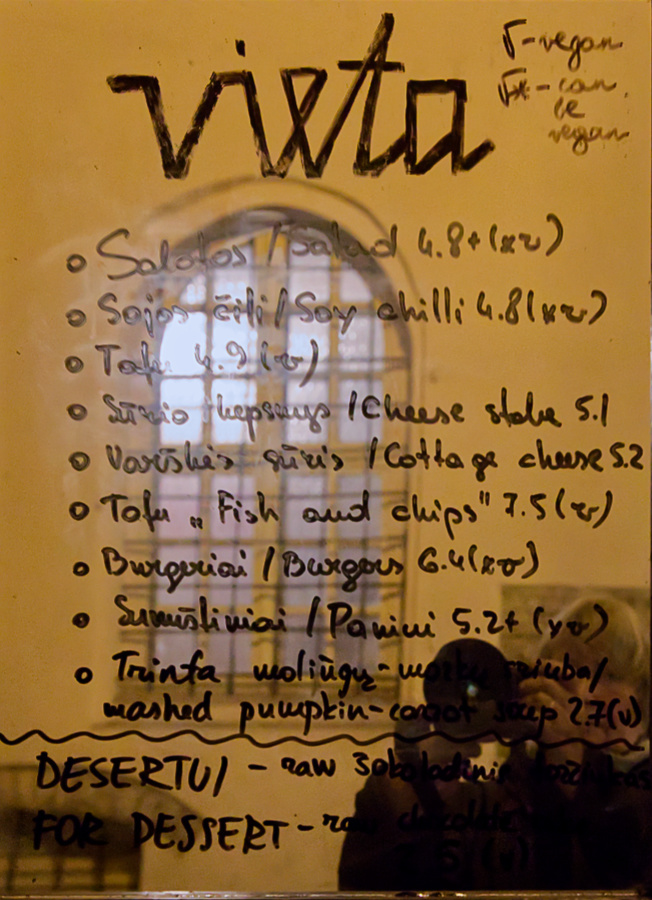 vieta
V-vegan
V*-can
be
vegan
o Salotos / Salad 4.8+(xv)
o Sojos čili / Soy chilli 4.8(xv)
o Tofu 4.9 (v)
o Sūrio kepsnys / Cheese stake 5.1
o Varškės sūris / Cottage cheese 5.2
o Tofu „Fish and chips" 7.5 (v)
o Burgeriai / Burgers 6.4(xv)
o Sumuštiniai / Panini 5.2+ (xv)
o Trinta moliūgų-morkų sriuba/
mashed pumpkin-carrot soup 2.7(v)
DESERTUI - raw šokoladinis
FOR DESSERT - raw chocolate
(v)